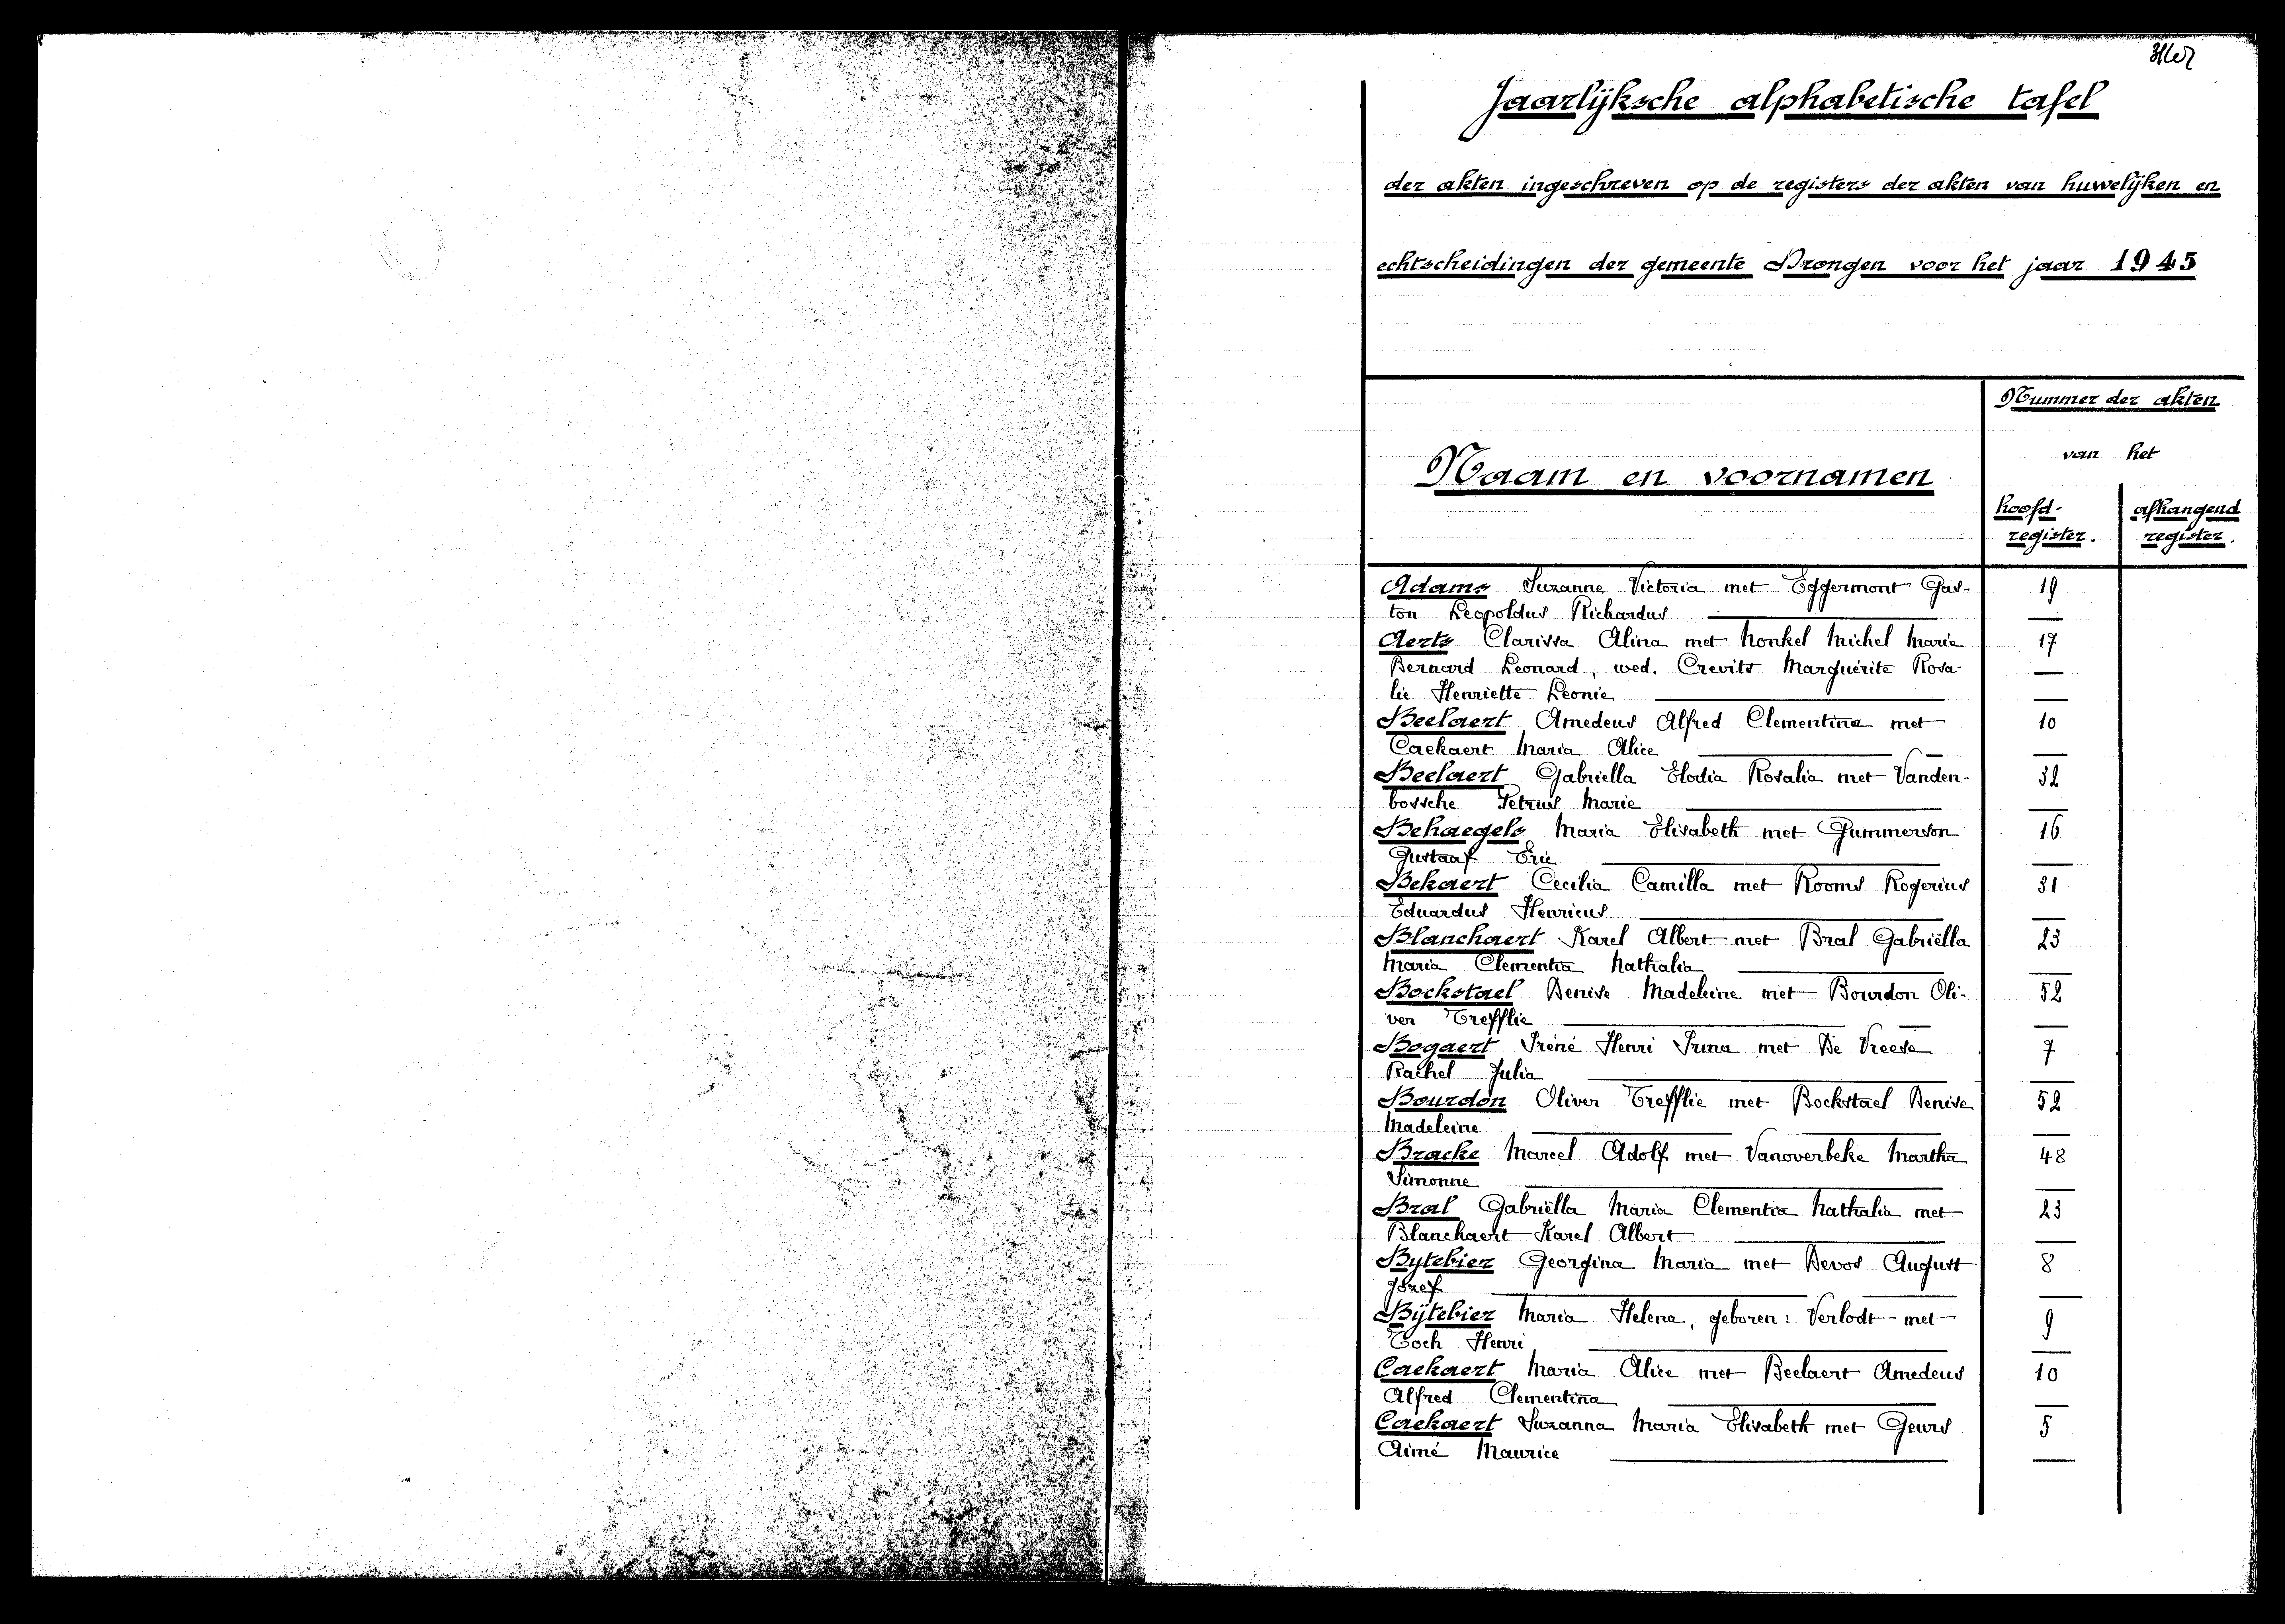 Jaarlijksche alphabetische tafel
der akten ingeschreven op de registers der akten van huwelijken en
echtscheidingen der gemeente Drongen voor het jaar 1945
Nummer der akten
van het
Naam en voornamen
hoofd-
register.
afhangend
register.
Adams Suzanne Victoria met Eggermont Gas- 19
ton Leopoldus Richardus —
Aerts Clarissa Alina met Monkel Michel Marie 17
Bernard Leonard, wed. Crevits Marguérite Rosa- —
lie Henriette Leonie —
Beelaert Amedeus Alfred Clementina met 10
Caekaert Maria Alice —
Beelaert Gabriella Elodia Rosalia met Vanden- 32
bossche Petrus Marie —
Behaegels Maria Elisabeth met Gummerson 16
Gustaaf Eric —
Bekaert Cecilia Camilla met Rooms Rogerius 31
Eduardus Henricus —
Blanchaert Karel Albert met Bral Gabriëlla 23
Maria Clementia Nathalia —
Bockstael Denise Madeleine met Bourdon Oli- 52
ver Trefflie —
Bogaert Iréné Henri Irma met De Vreese 7
Rachel Julia —
Bourdon Oliver Trefflie met Bockstael Denise 52
Madeleine —
Bracke Marcel Adolf met Vanoverbeke Martha 48
Simonne —
Bral Gabriëlla Maria Clementia Nathalia met 23
Blanchaert Karel Albert —
Bytebier Georgina Maria met Devos August 8
Jozef —
Bijtebier Maria Helena, geboren: Verlodt met 9
Toch Henri —
Caekaert Maria Alice met Beelaert Amedeus 10
Alfred Clementina —
Caekaert Suzanna Maria Elisabeth met Geurs 5
Aimé Maurice —